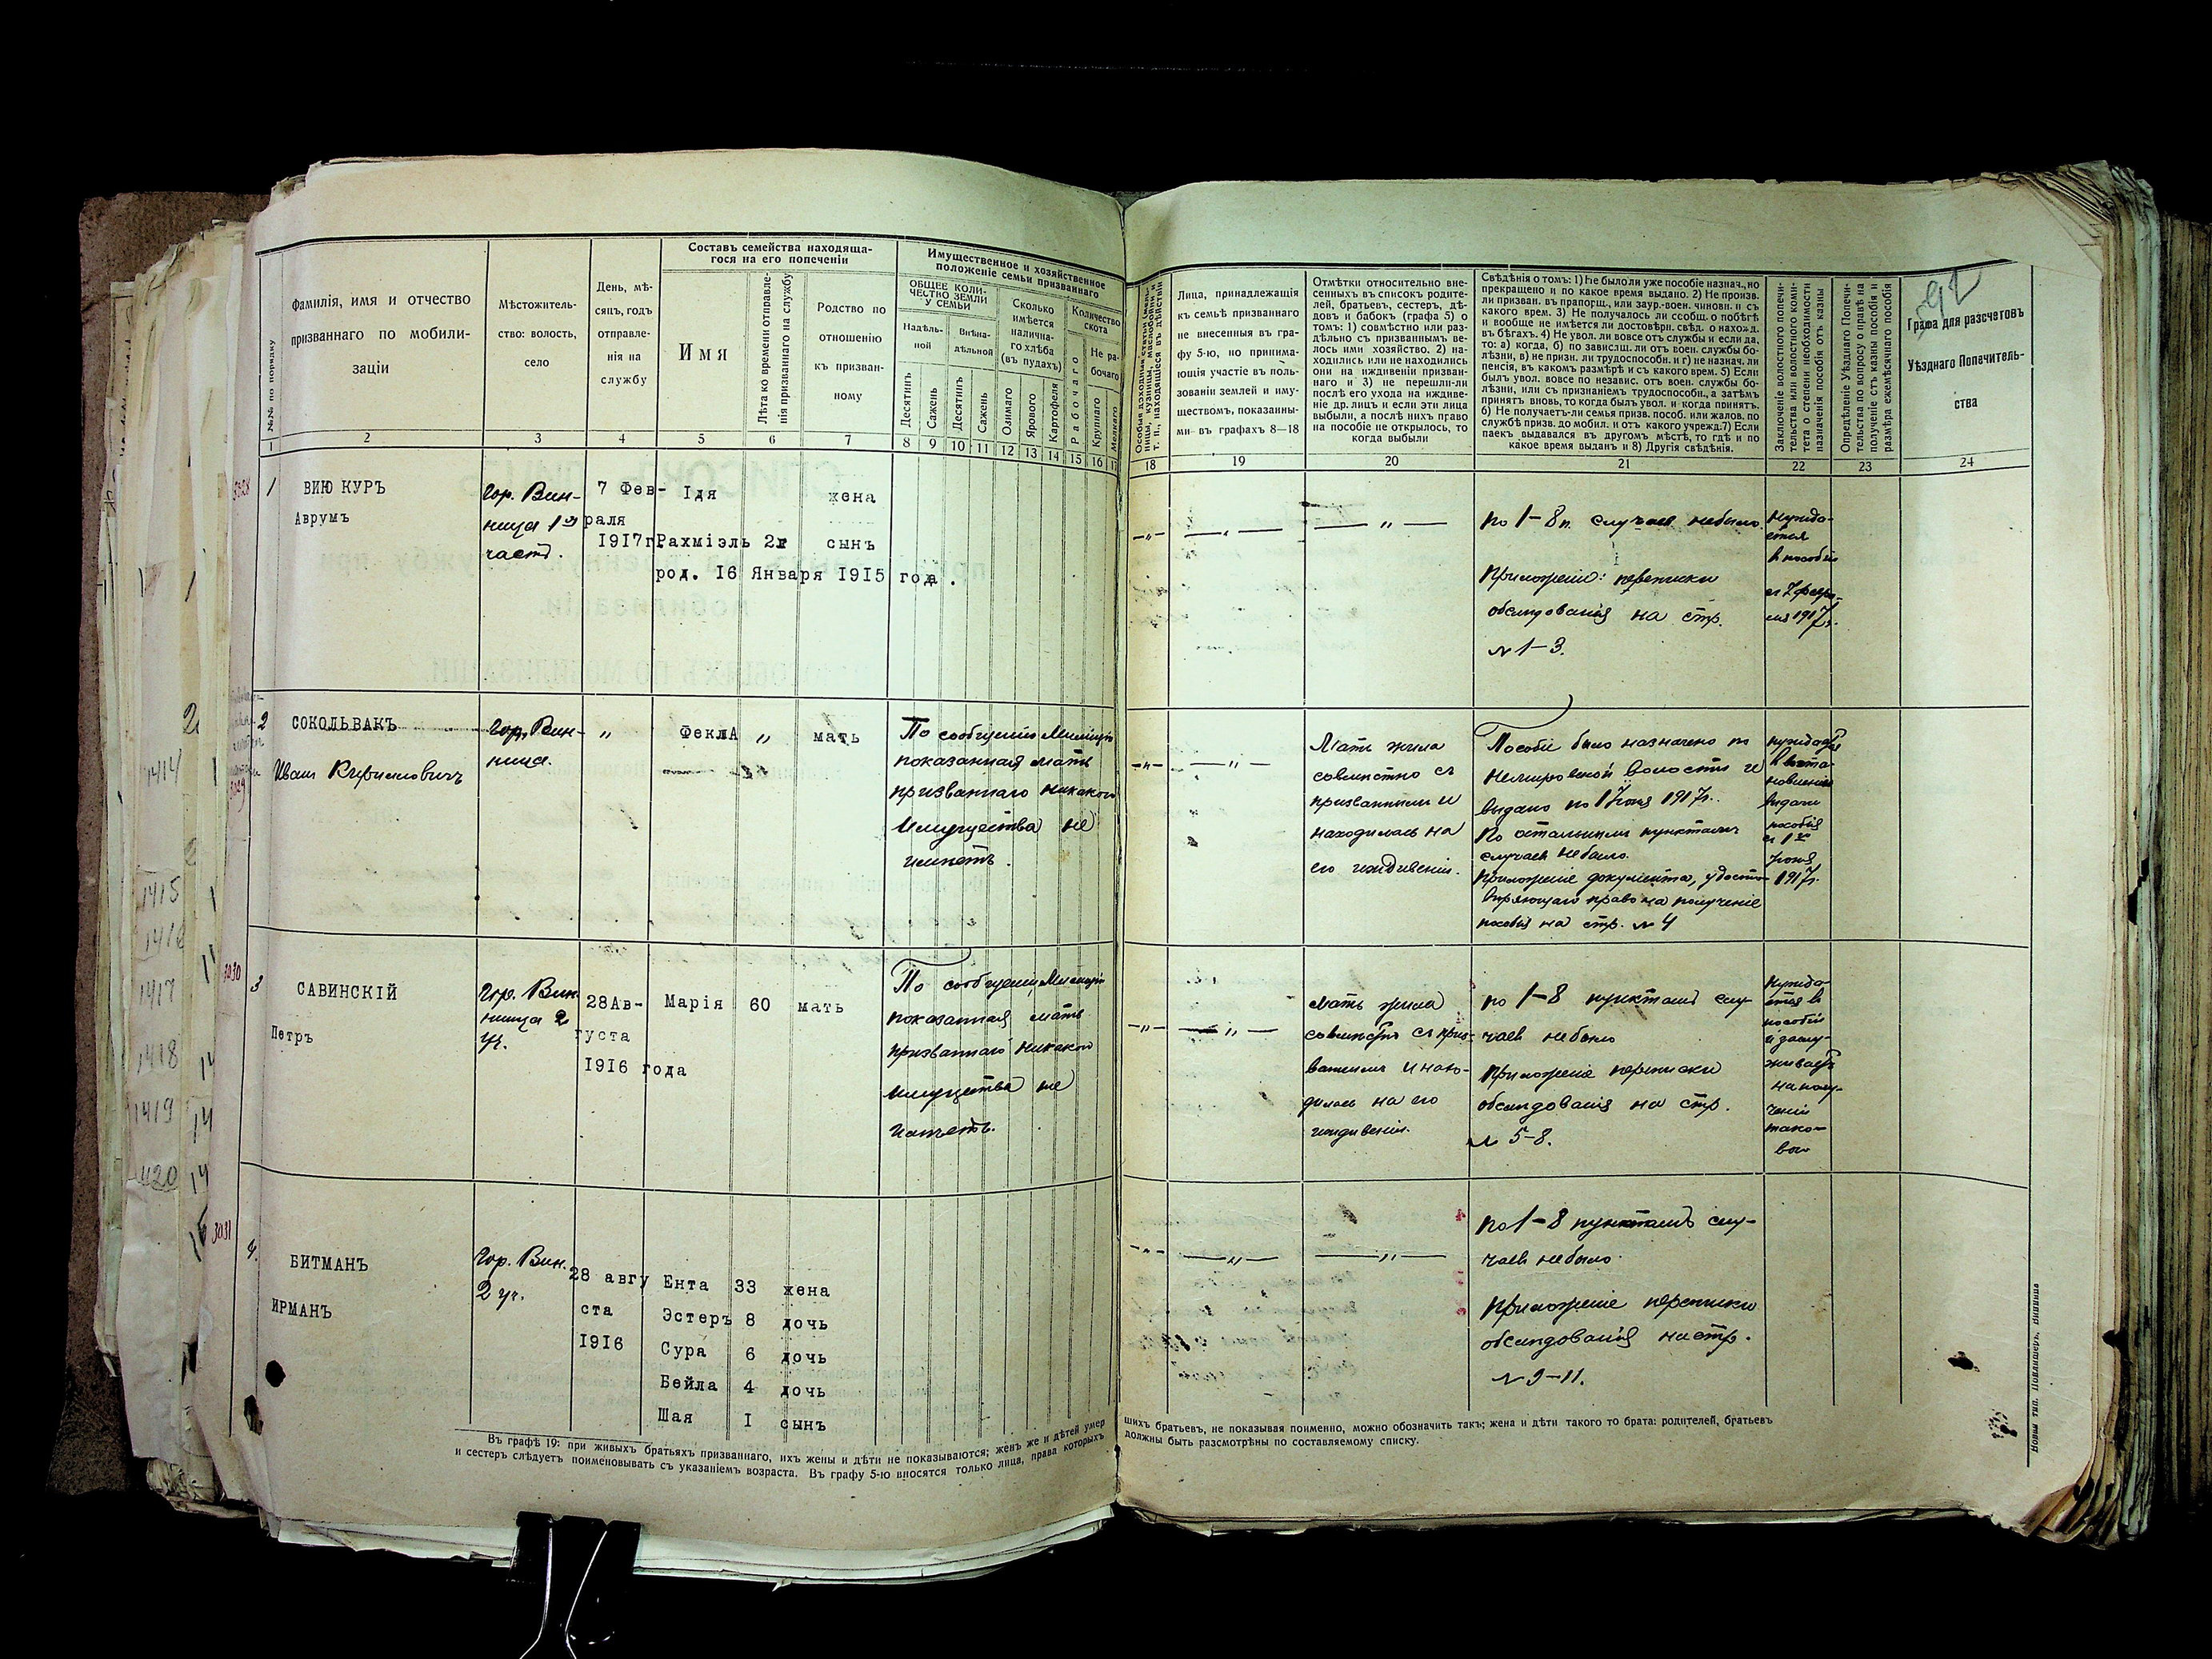 Составъ семейства находяща-
гося на его попеченіи
Имущественное и хозяйственное
положеніе семьи призваннаго
№№ по порядку
Фамилія, имя и отчество
призваннаго по мобили-
заціи
Мѣстожитель-
ство: волость,
село
День, мѣ-
сяцъ, годъ
отправле-
нія на
службу
Имя
Лѣта ко времени отправле-
нія призваннаго на службу
Родство по
отношенію
къ призван-
ному
ОБЩЕЕ КОЛИ-
ЧЕСТВО ЗЕМЛИ
У СЕМЬИ
Надѣль-
ной
Внѣна-
дѣльной
Десятинъ
Сажень
Десятинъ
Сажень
Сколько
имѣется
налична-
го хлѣба
(въ пудахъ)
Озимаго
Яроваго
Картофеля
Количество
скота
Рабочаго
Не ра-
бочаго
Крупнаго
Мелкаго
1 2 3 4 5 6 7 8 9 10 11 12 13 14 15 16 17
Лица, принадлежащія
къ семьѣ призваннаго
не внесенныя въ гра-
фу 5-ю, но принима-
ющія участіе въ поль-
зованіи землей и иму-
ществомъ, показанны-
ми въ графахъ 8—18
Отмѣтки относительно вне-
сенныхъ въ списокъ родите-
лей, братьевъ, сестеръ, дѣ-
довъ и бабокъ (графа 5) о
томъ: 1) совмѣстно или раз-
дѣльно съ призваннымъ ве-
лось ими хозяйство. 2) на-
ходились или не находились
они на иждивеніи призван-
наго и 3) не перешли-ли
послѣ его ухода на иждиве-
ніе др. лицъ и если эти лица
выбыли, а послѣ нихъ право
на пособіе не открылось, то
когда выбыли
Свѣдѣнія о томъ: 1) Не было ли уже пособіе назнач., но
прекращено и по какое время выдано. 2) Не произв.
ли призван. въ прапорщ., или заур.-воен. чиновн. и съ
какого врем. 3) Не получалось ли сообщ. о побѣгѣ
и вообще не имѣется ли достовѣрн. свѣд. о нахожд.
въ бѣгахъ. 4) Не увол. ли вовсе отъ службы и если да,
то: а) когда, б) по зависящ. ли отъ воен. службы бо-
лѣзни, в) не призн. ли трудоспособн. и г) не назнач. ли
пенсія, въ какомъ размѣрѣ и съ какого врем. 5) Если
былъ увол. вовсе по независ. отъ воен. службы бо-
лѣзни, или съ признаніемъ трудоспособн., а затѣмъ
принятъ вновь, то когда былъ увол. и когда принятъ.
6) Не получаетъ-ли семья призв. пособ. или жалов. по
службѣ призв. до мобил. и отъ какого учрежд. 7) Если
паекъ выдавался въ другомъ мѣстѣ, то гдѣ и по
какое время выданъ и 8) Другія свѣдѣнія.
Заключеніе волостного попечи-
тельства или волостного коми-
тета о степени необходимости
назначенія пособія отъ казны
Опредѣленіе Уѣзднаго Попечи-
тельства по вопросу о правѣ на
полученіе отъ казны пособія и
размѣра ежемѣсячнаго пособія
92
Графа для разсчетовъ
Уѣзднаго Попечитель-
ства
18 19 20 21 22 23 24
1
ВИЮ КУРЪ
Аврумъ
Гор. Вин-
ница 1й
часть.
7 Фев-
раля
1917г
Ідя жена
Рахміэль 2г сынъ
род. 16 Января 1915 года.
—„— —„— —„—
по 1–8 п. случаев небыло.
Приложеніе: переписки
обслѣдованія на стр.
№ 1–3.
Нужда-
ется
въ пособіи
съ 7 февра-
ля 1917г.
2
3029
СОКОЛЬВАКЪ
Иванъ Кириловичъ
Гор. Вин-
ница.
„
ФеклА „ мать
По сообщенію Милиціи
показанная мать
призваннаго никакого
имущества не
имѣетъ.
—„— —„—
Мать жила
совмѣстно съ
призваннымъ и
находилась на
его иждивеніи.
Пособіе было назначено по
Немировской волости и
выдано по 1 Іюня 1917г.
По остальнымъ пунктамъ
случаев небыло.
Приложеніе документа, удосто-
вѣряющаго право на полученіе
пособія на стр. № 4
выдачи
пособія
съ 1го
Іюня
1917г.
3030
3
САВИНСКІЙ
Петръ
Гор. Вин
ница 2
уч.
28Ав-
густа
1916 года
Марія 60 мать
По сообщенію Милиціи
показанная мать
призваннаго никакого
имущества не
имѣетъ.
—„— —„—
Мать жила
совмѣстно съ приз-
ваннымъ и нахо-
дилась на его
иждивеніи.
по 1–8 пунктамъ слу-
чаев небыло
Приложеніе переписки
обслѣдованія на стр.
№ 5–8.
Нужда-
ется въ
пособіи
и заслу-
живаетъ
на полу-
ченіе
тако-
вого
3031
4.
БИТМАНЪ
ИРМАНЪ
Гор. Вин.
2 уч.
28 авгу
ста
1916
Ента 33 жена
Эстеръ 8 дочь
Сура 6 дочь
Бейла 4 дочь
Шая I сынъ
—„— —„— —„—
По 1–8 пунктамъ слу-
чаев небыло
Приложеніе переписки
обслѣдованія на стр.
№ 9–11.
Въ графѣ 19: при живыхъ братьяхъ призваннаго, ихъ жены и дѣти не показываются; женъ же и дѣтей умер
шихъ братьевъ, не показывая поименно, можно обозначить такъ; жена и дѣти такого то брата: родителей, братьевъ
и сестеръ слѣдуетъ поименовывать съ указаніемъ возраста. Въ графу 5-ю вносятся только лица, права которыхъ
должны быть разсмотрѣны по составляемому списку.
1414
1415
1416
1417
1418
1419
420